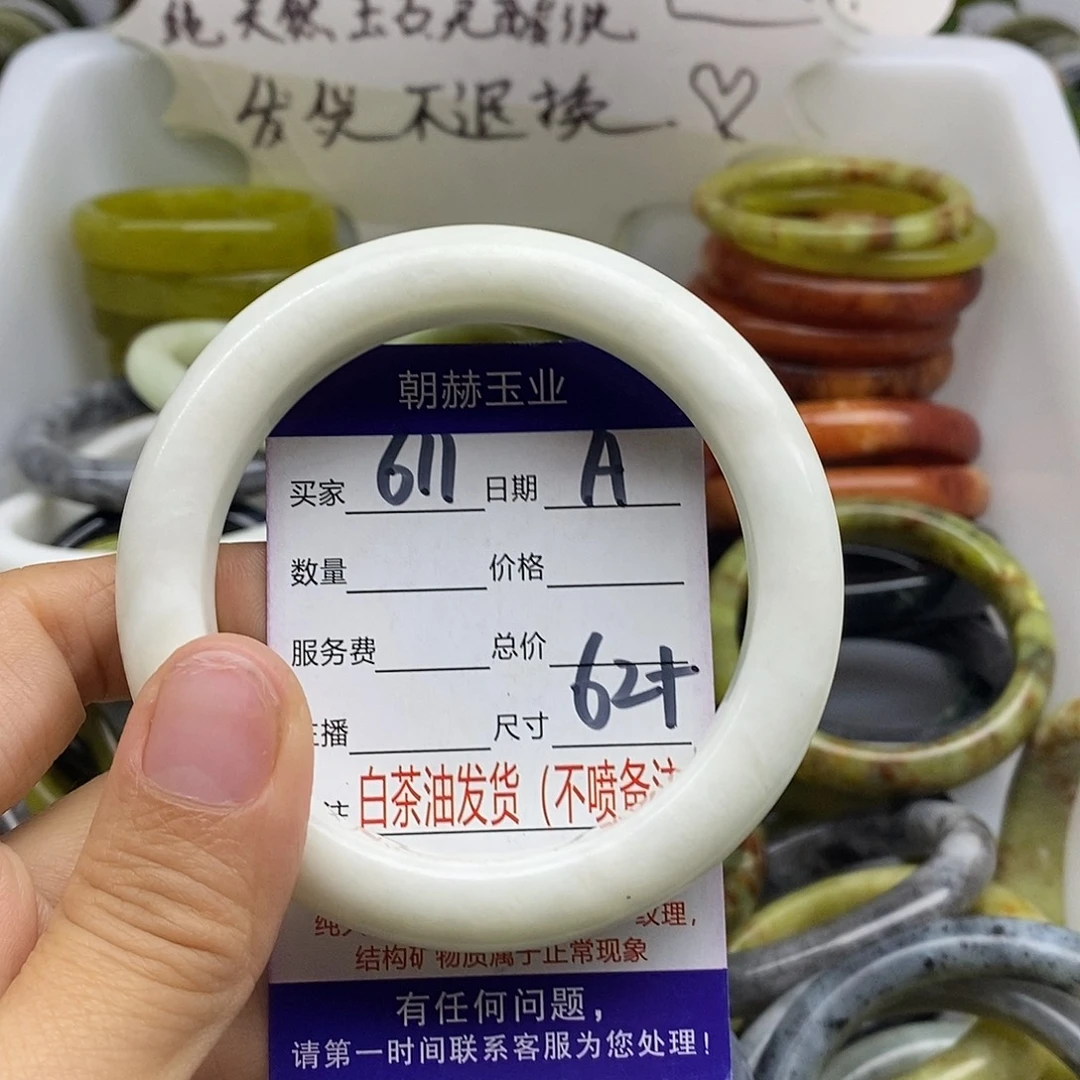 纯天然玉石无酸洗
发货不退换
朝赫玉业
买家 611 日期 A
数量 价格
服务费 总价
播 尺寸 62+
白茶油发货（不喷备注
纹理，
结构矿物质属于正常现象
有任何问题，
请第一时间联系客服为您处理！